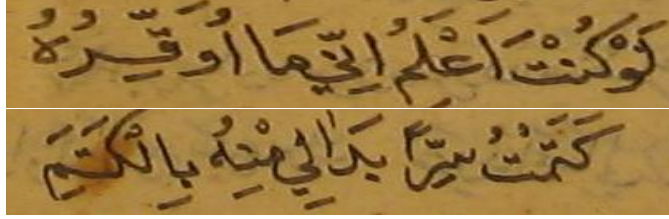 لَوْ كُنْتُ اَعْلَمُ اِنِّي مَا اُوَقِّرُهُ
كَتَمْتُ سِرًّا بَدَا لِي مِنْهُ بِالْكَتَمِ